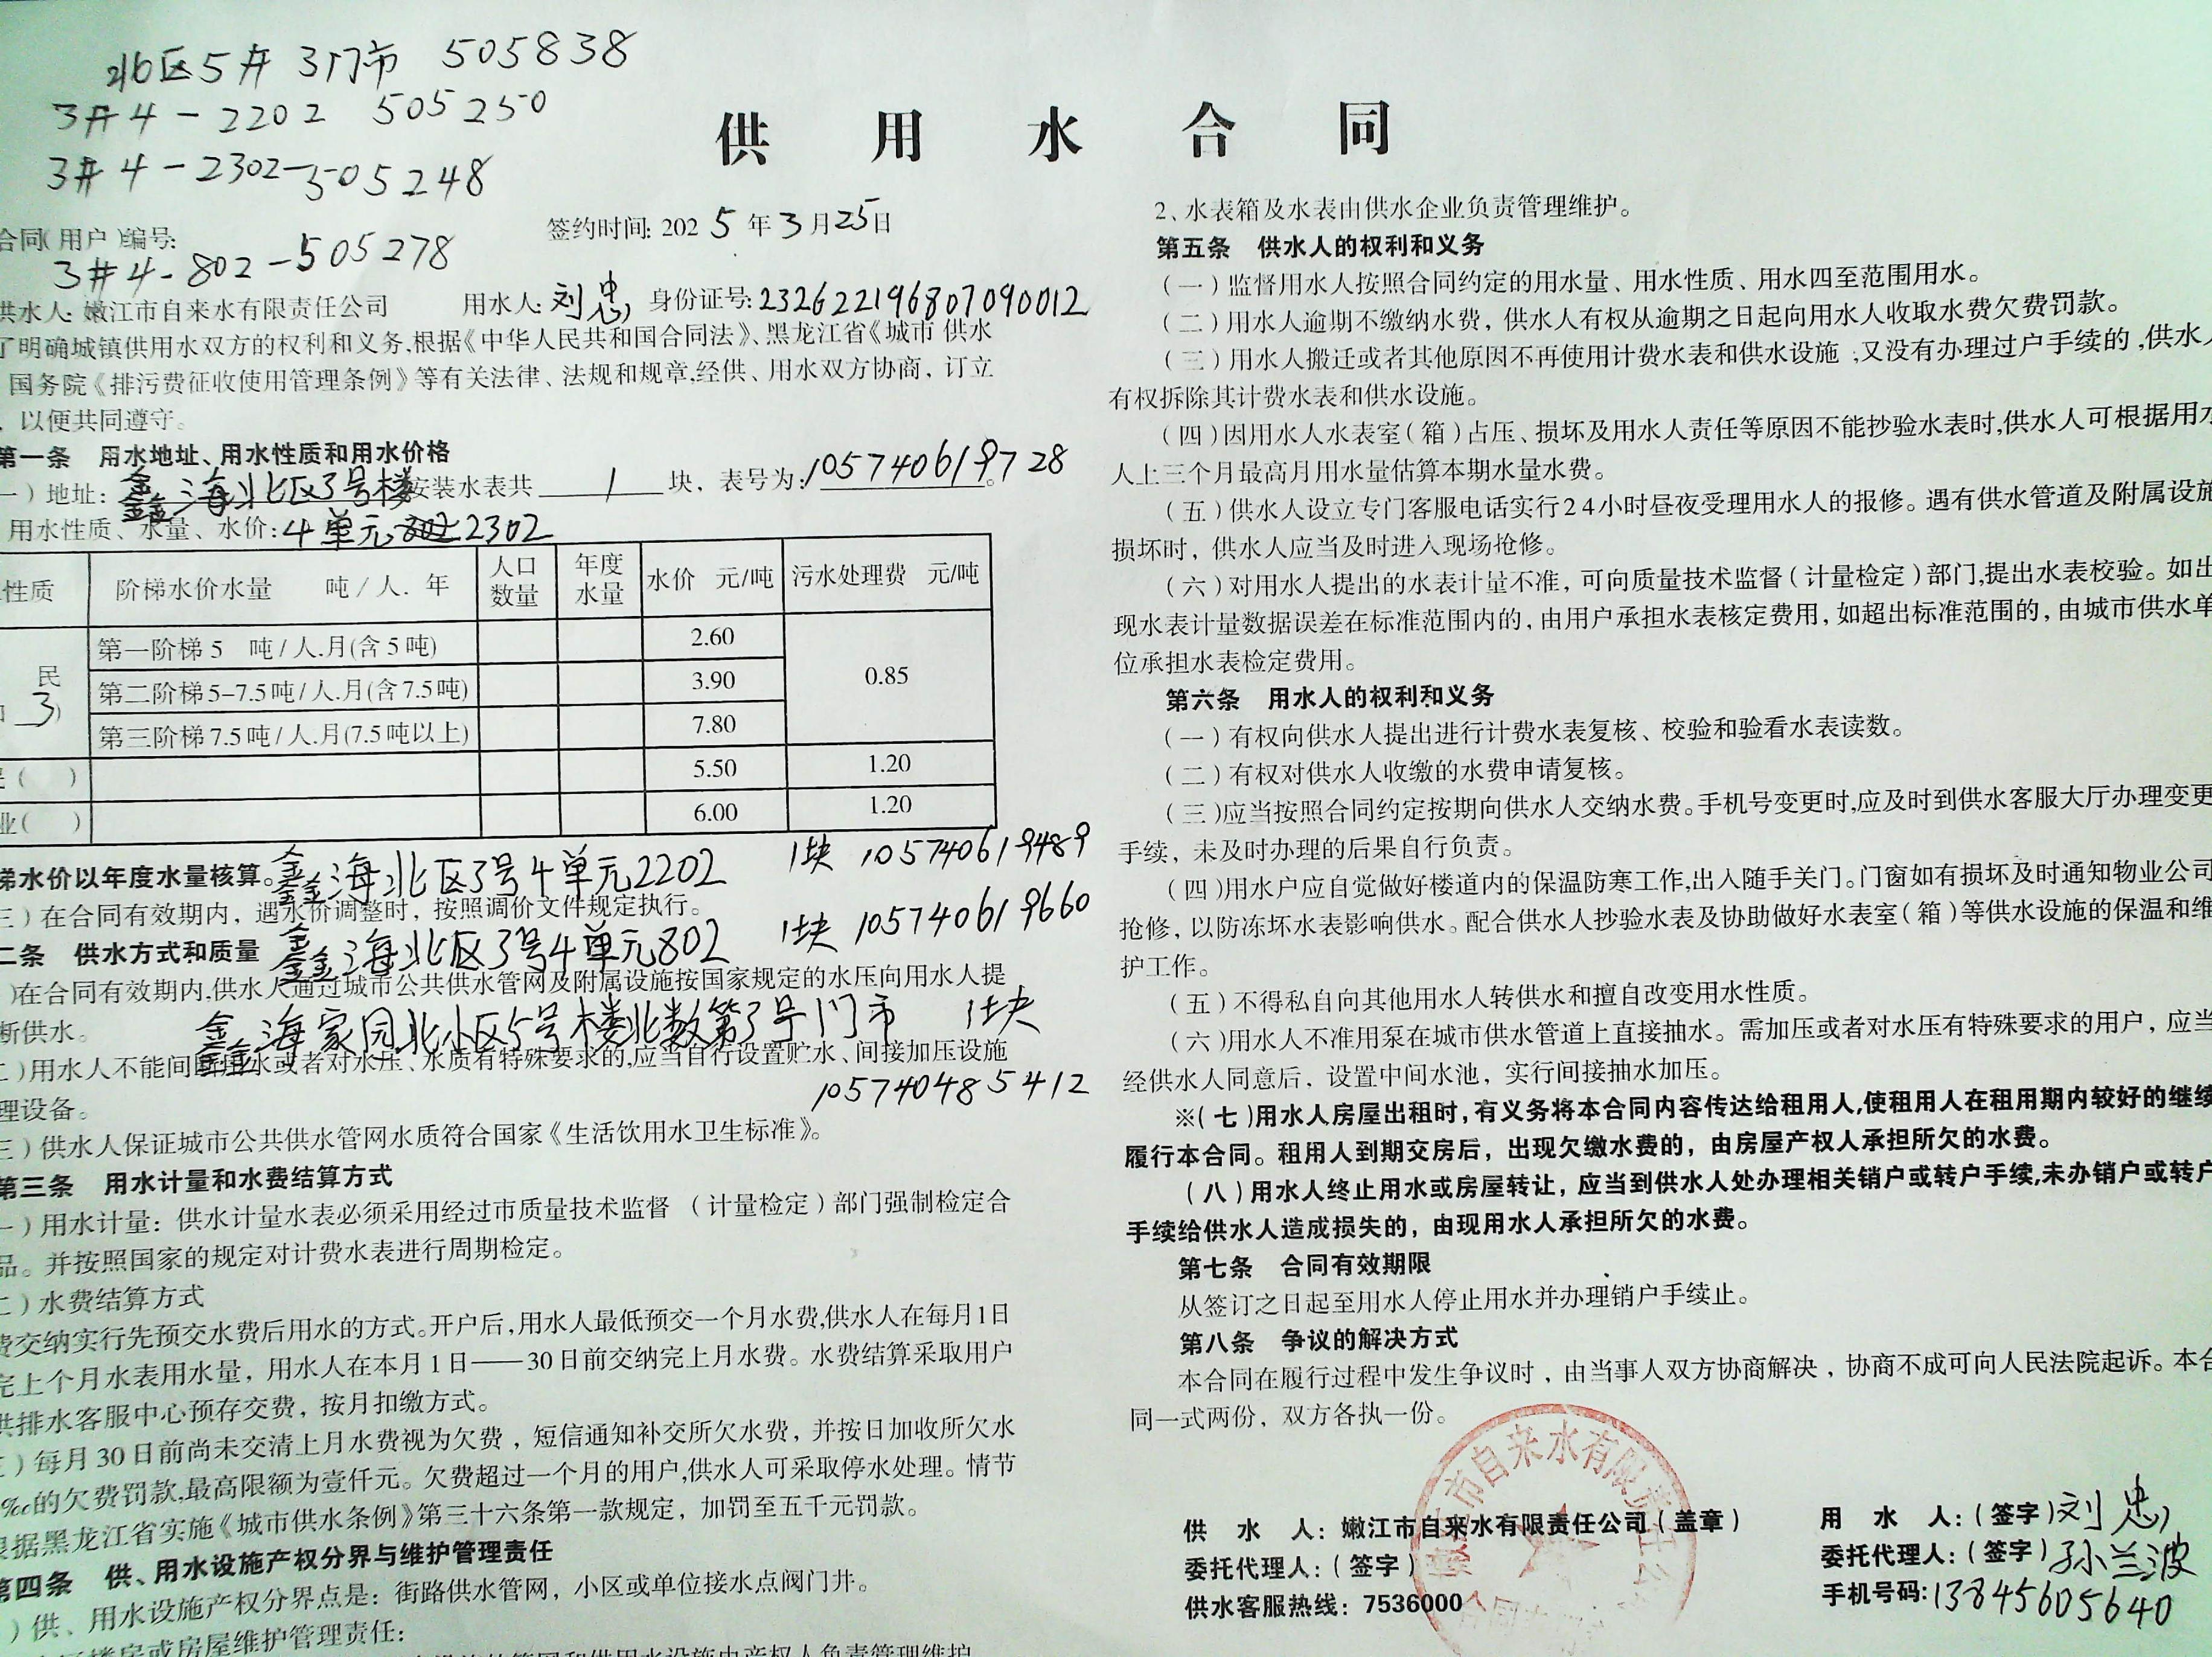 北区5# 3门市 505838
3#4-2202 505250
3#4-2302-505248
供用水合同
合同(用户)编号:
签约时间: 2025年3月25日
3#4-802-505278
供水人: 嫩江市自来水有限责任公司 用水人: 刘忠 身份证号: 232622196807090012
了明确城镇供用水双方的权利和义务,根据《中华人民共和国合同法》、黑龙江省《城市 供水
国务院《排污费征收使用管理条例》等有关法律、法规和规章,经供、用水双方协商，订立
，以便共同遵守。
第一条 用水地址、用水性质和用水价格
一）地址：鑫海北区3号楼安装水表共 1 块，表号为: 105740619728。
用水性质、水量、水价: 4单元 802 2302
性质 阶梯水价水量 吨/人. 年 人口数量 年度水量 水价 元/吨 污水处理费 元/吨
民 3) 第一阶梯5 吨/人.月(含5吨) 2.60 0.85
第二阶梯5-7.5吨/人.月(含7.5吨) 3.90
第三阶梯7.5吨/人.月(7.5吨以上) 7.80
( ) 5.50 1.20
业( ) 6.00 1.20
梯水价以年度水量核算。鑫海北区3号4单元2202 1块 105740619489
三）在合同有效期内，遇水价调整时，按照调价文件规定执行。
二条 供水方式和质量 鑫海北区3号4单元802 1块 105740619660
)在合同有效期内,供水人通过城市公共供水管网及附属设施按国家规定的水压向用水人提
断供水。 鑫海家园北小区5号楼北数第3号门市 1块
二)用水人不能间断用水或者对水压、水质有特殊要求的,应当自行设置贮水、间接加压设施
理设备。 105740485412
三）供水人保证城市公共供水管网水质符合国家《生活饮用水卫生标准》。
第三条 用水计量和水费结算方式
一）用水计量：供水计量水表必须采用经过市质量技术监督 （计量检定）部门强制检定合
品。并按照国家的规定对计费水表进行周期检定。
二）水费结算方式
费交纳实行先预交水费后用水的方式。开户后,用水人最低预交一个月水费,供水人在每月1日
完上个月水表用水量，用水人在本月1日——30日前交纳完上月水费。水费结算采取用户
供排水客服中心预存交费，按月扣缴方式。
三）每月30日前尚未交清上月水费视为欠费，短信通知补交所欠水费，并按日加收所欠水
‰的欠费罚款,最高限额为壹仟元。欠费超过一个月的用户,供水人可采取停水处理。情节
根据黑龙江省实施《城市供水条例》第三十六条第一款规定，加罚至五千元罚款。
第四条 供、用水设施产权分界与维护管理责任
）供、用水设施产权分界点是：街路供水管网，小区或单位接水点阀门井。
楼房或房屋维护管理责任:
2、水表箱及水表由供水企业负责管理维护。
第五条 供水人的权利和义务
（一）监督用水人按照合同约定的用水量、用水性质、用水四至范围用水。
（二）用水人逾期不缴纳水费，供水人有权从逾期之日起向用水人收取水费欠费罚款。
（三）用水人搬迁或者其他原因不再使用计费水表和供水设施，又没有办理过户手续的，供水人
有权拆除其计费水表和供水设施。
（四）因用水人水表室（箱）占压、损坏及用水人责任等原因不能抄验水表时,供水人可根据用水
人上三个月最高月用水量估算本期水量水费。
（五）供水人设立专门客服电话实行24小时昼夜受理用水人的报修。遇有供水管道及附属设施
损坏时，供水人应当及时进入现场抢修。
（六）对用水人提出的水表计量不准，可向质量技术监督（计量检定）部门,提出水表校验。如出
现水表计量数据误差在标准范围内的，由用户承担水表核定费用，如超出标准范围的，由城市供水单
位承担水表检定费用。
第六条 用水人的权利和义务
（一）有权向供水人提出进行计费水表复核、校验和验看水表读数。
（二）有权对供水人收缴的水费申请复核。
（三)应当按照合同约定按期向供水人交纳水费。手机号变更时,应及时到供水客服大厅办理变更
手续，未及时办理的后果自行负责。
（四)用水户应自觉做好楼道内的保温防寒工作,出入随手关门。门窗如有损坏及时通知物业公司
抢修，以防冻坏水表影响供水。配合供水人抄验水表及协助做好水表室（箱）等供水设施的保温和维
护工作。
（五）不得私自向其他用水人转供水和擅自改变用水性质。
（六)用水人不准用泵在城市供水管道上直接抽水。需加压或者对水压有特殊要求的用户，应当
经供水人同意后，设置中间水池，实行间接抽水加压。
※（七)用水人房屋出租时,有义务将本合同内容传达给租用人,使租用人在租用期内较好的继续
履行本合同。租用人到期交房后，出现欠缴水费的，由房屋产权人承担所欠的水费。
（八）用水人终止用水或房屋转让，应当到供水人处办理相关销户或转户手续,未办销户或转户
手续给供水人造成损失的，由现用水人承担所欠的水费。
第七条 合同有效期限
从签订之日起至用水人停止用水并办理销户手续止。
第八条 争议的解决方式
本合同在履行过程中发生争议时，由当事人双方协商解决，协商不成可向人民法院起诉。本合
同一式两份，双方各执一份。
供 水 人：嫩江市自来水有限责任公司（盖章） 用 水 人：（签字）刘忠
委托代理人：（签字） 委托代理人：（签字）孙兰波
供水客服热线：7536000 手机号码: 13845605640